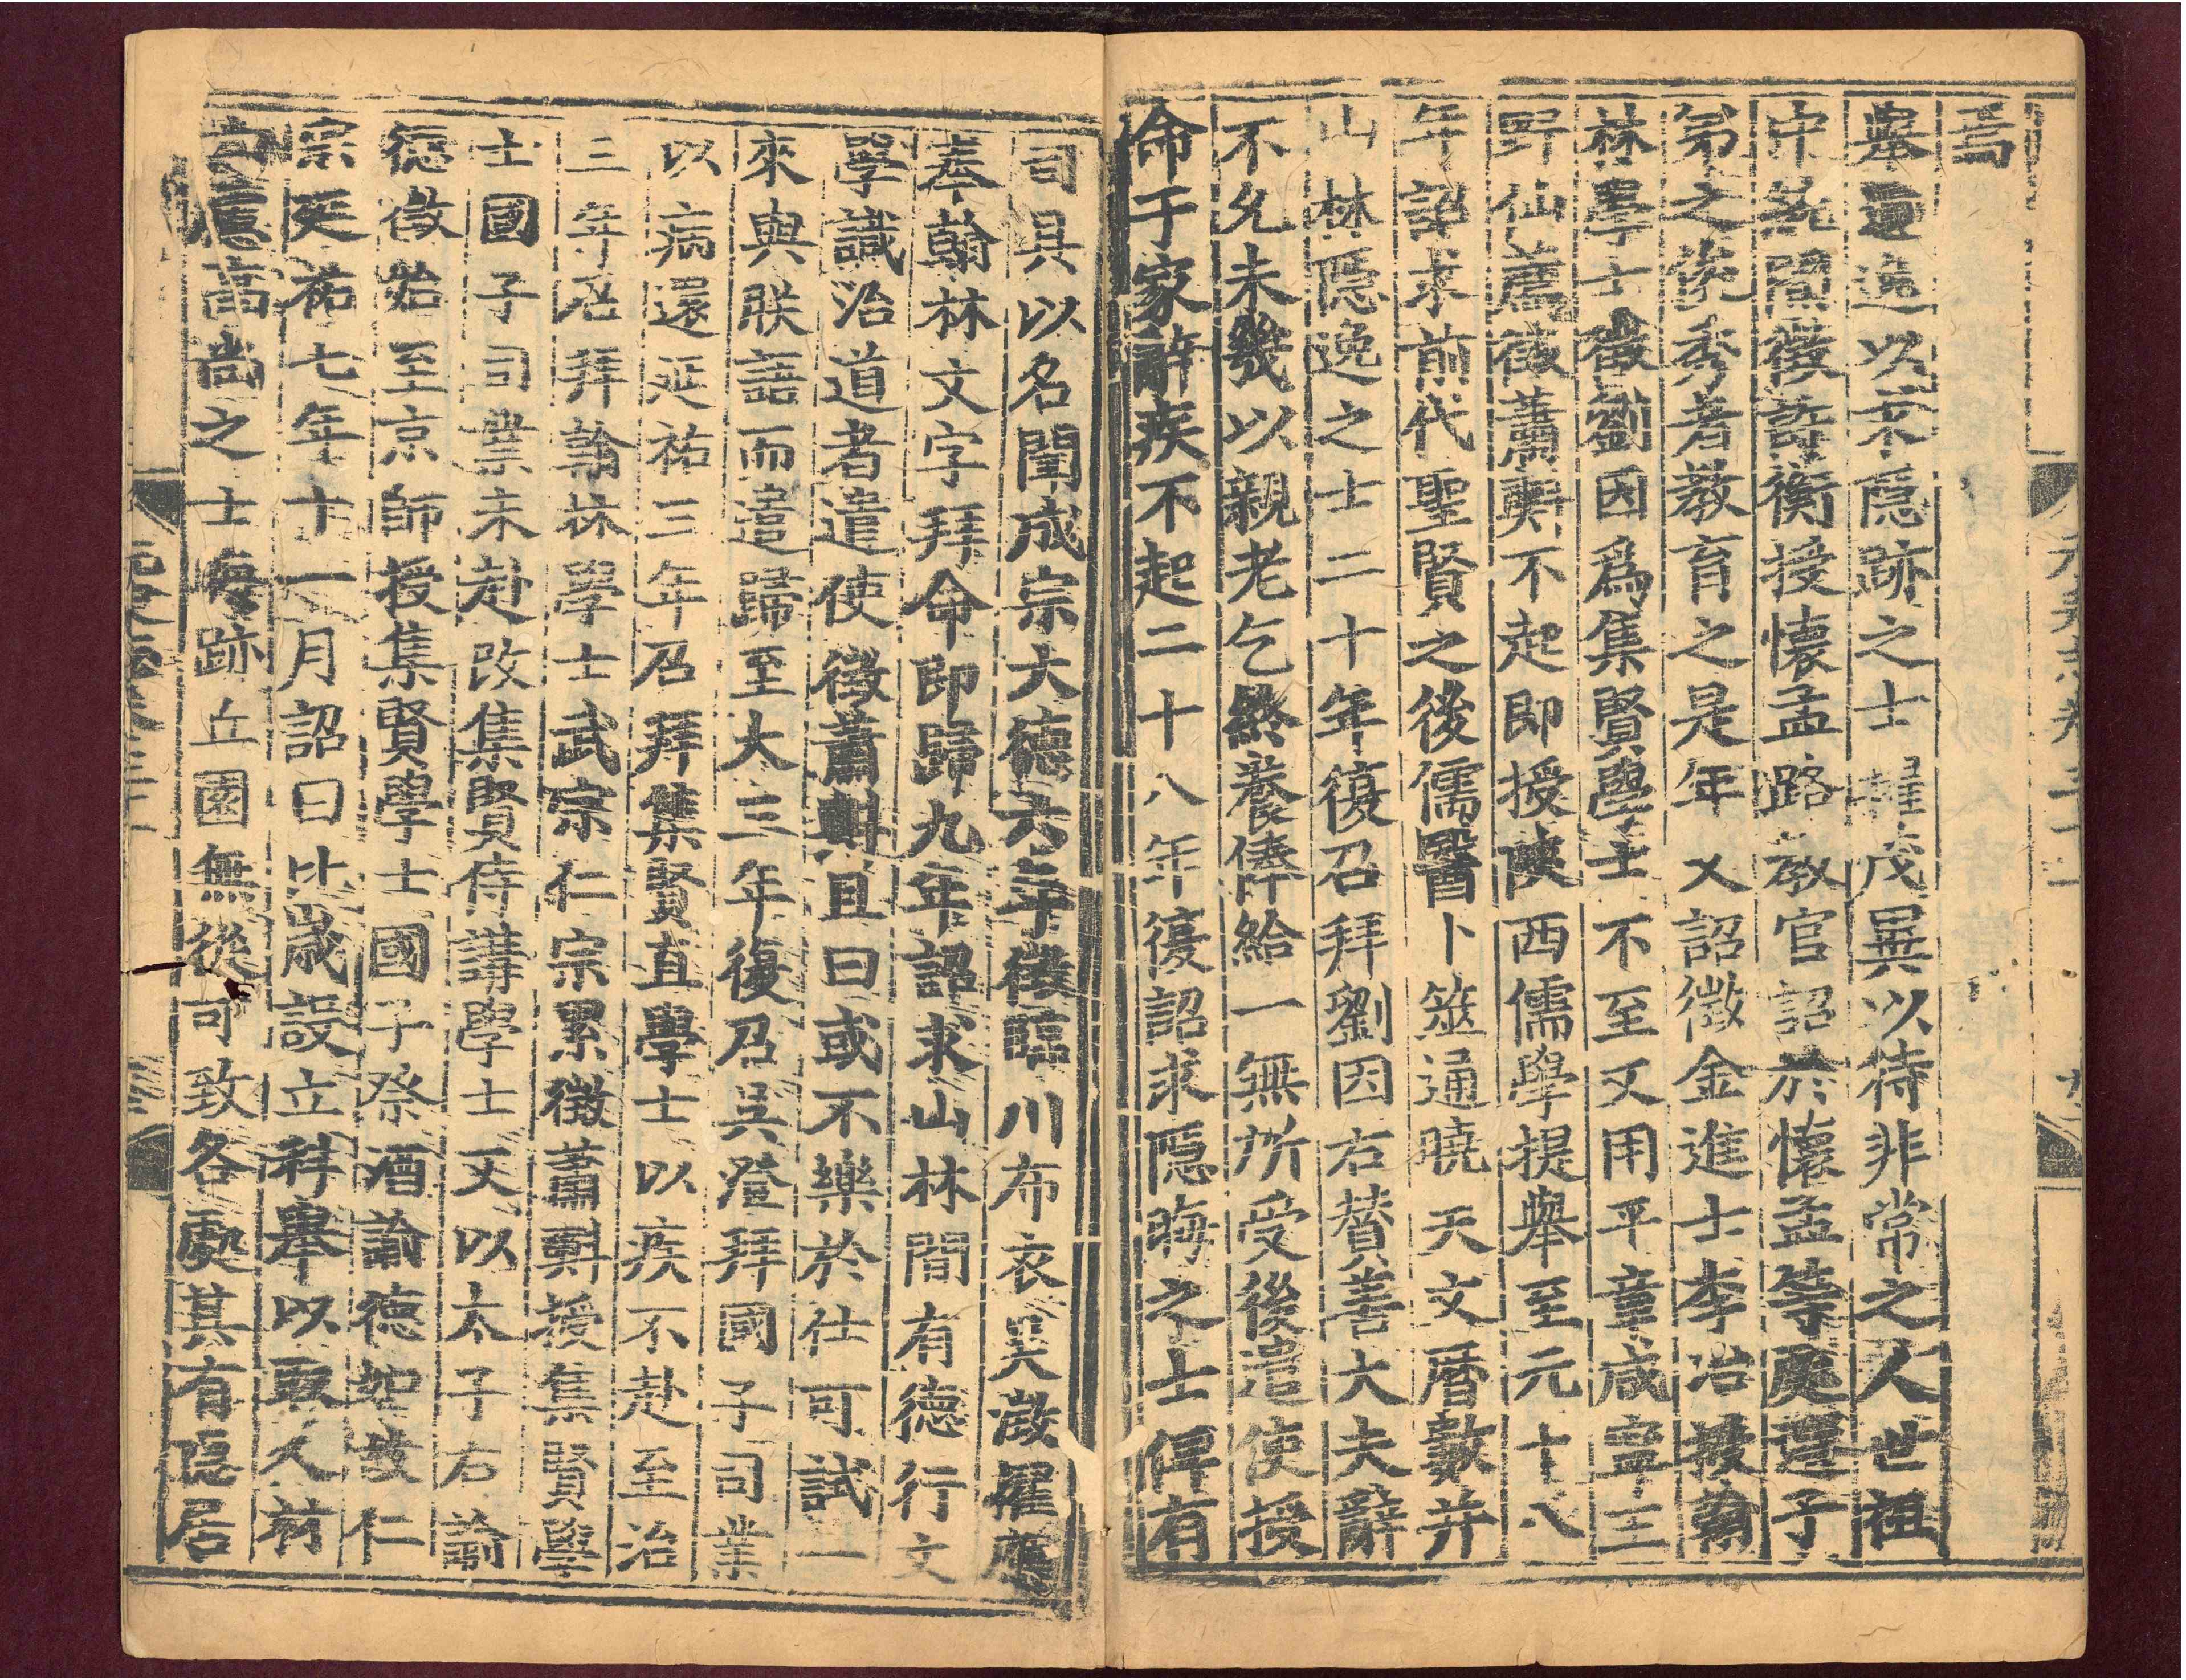 焉
舉遺逸以求隱跡之士擢茂異以待非常之人世祖
中統間徵許衡授懷孟路敎官詔於懷孟等處選子
弟之俊秀者敎育之是年又詔徵金進士李冶授翰
林學士徵劉因爲集賢學士不至又用平章咸寧王
野仙薦徵蕭㪺不起即授陝西儒學提舉至元十八
年詔求前代聖賢之後儒醫卜筮通曉天文曆數并
山林隱逸之士二十年復召拜劉因右贊善大夫辭
不允未幾以親老乞終養俸給一無所受後遣使授
命于家辭疾不起二十八年復詔求隱晦之士俾有
司具以名聞成宗大德六年徵臨川布衣吳澂擢應
奉翰林文字拜命即歸九年詔求山林間有德行文
學識治道者遣使徵蕭㪺且曰或不樂於仕可試一
來與朕語而遣歸至大三年復召吳澄拜國子司業
以病還延祐三年召拜集賢直學士以疾不赴至治
三年召拜翰林學士武宗仁宗累徵蕭㪺授集賢學
士國子司業未赴改集賢侍講學士又以太子右諭
德徵始至京師授集賢學士國子祭酒諭德如故仁
宗延祐七年十一月詔曰比歲設立科舉以取人材
尚慮高尚之士晦跡丘園無從可致各處其有隱居